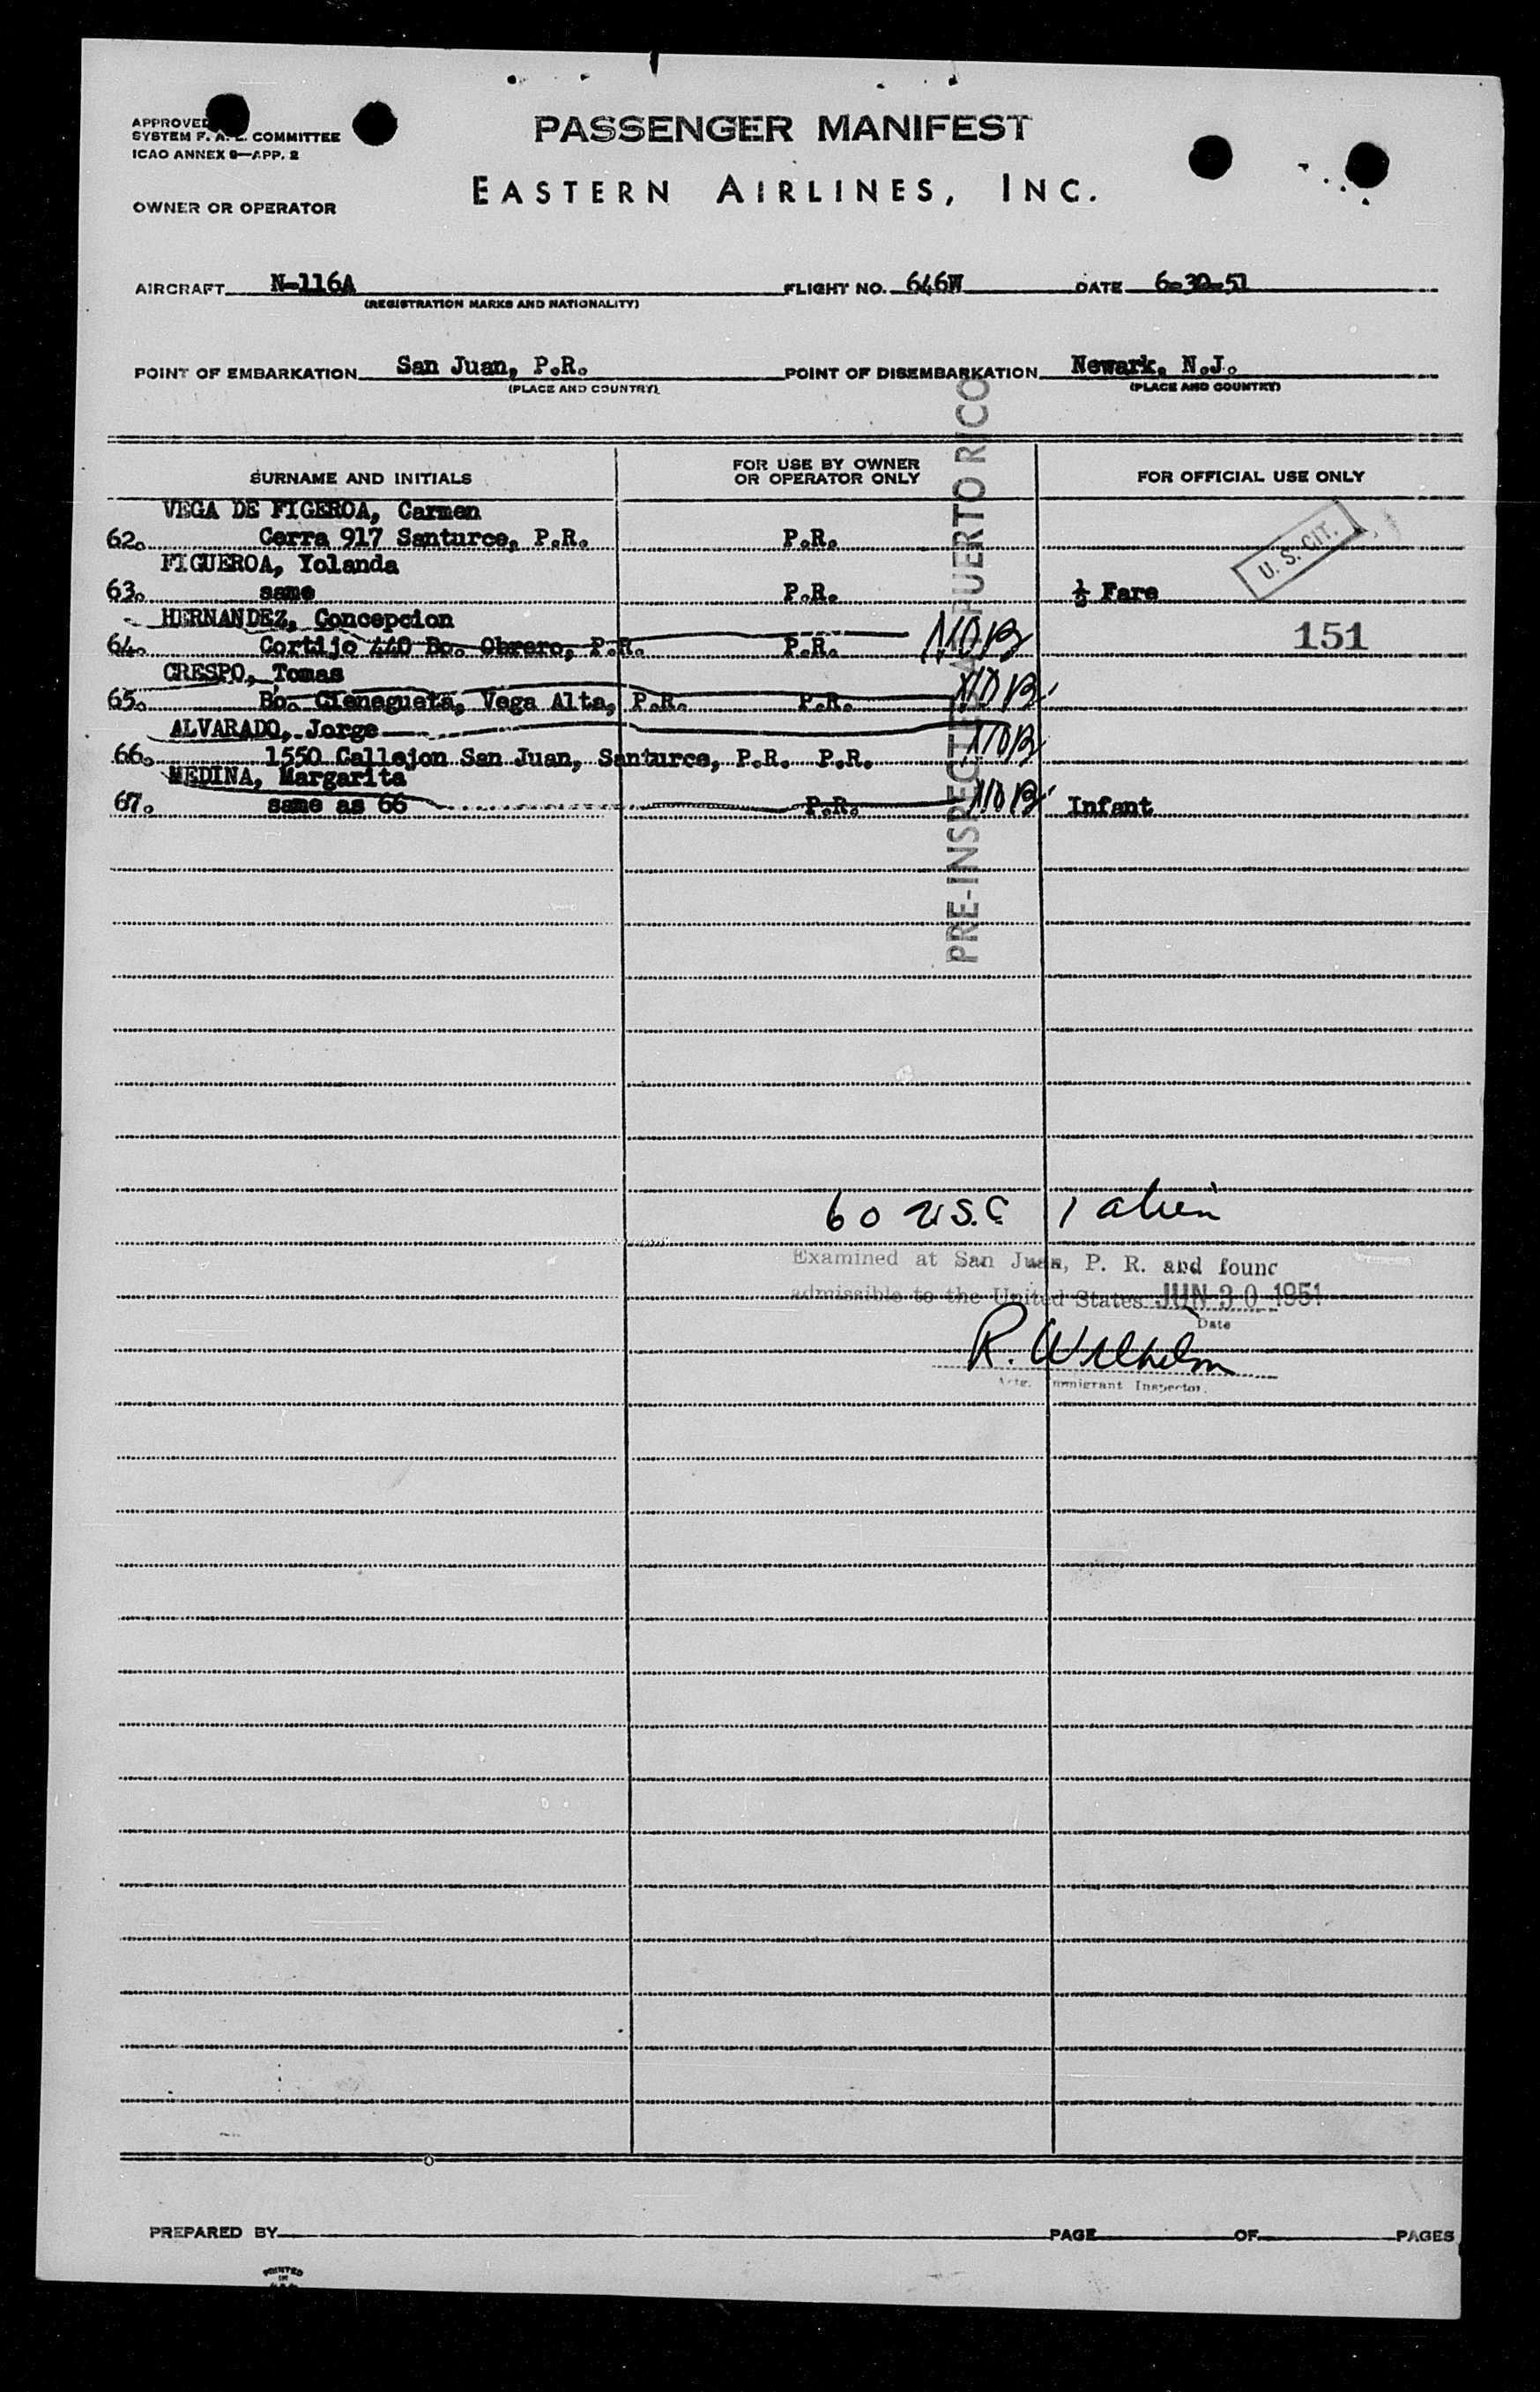 APPROVED
SYSTEM F. A. L. COMMITTEE
ICAO ANNEX 9—APP. 2
PASSENGER MANIFEST
EASTERN AIRLINES, INC.
OWNER OR OPERATOR
AIRCRAFT N-116A FLIGHT NO. 646W DATE 6-30-51
(REGISTRATION MARKS AND NATIONALITY)
POINT OF EMBARKATION San Juan, P.R. POINT OF DISEMBARKATION Newark, N.J.
(PLACE AND COUNTRY) (PLACE AND COUNTRY)
SURNAME AND INITIALS FOR USE BY OWNER OR OPERATOR ONLY FOR OFFICIAL USE ONLY
VEGA DE FIGEROA, Carmen
62. Cerra 917 Santurce, P.R. P.R. U. S. CIT.
FIGUEROA, Yolanda
63. same P.R. ½ Fare
HERNANDEZ, Concepcion
64. Cortijo 440 Bo. Obrero, P.R. P.R. NOB 151
CRESPO, Tomas
65. Bo. Cienegueta, Vega Alta, P.R. P.R. NOB
ALVARADO, Jorge
66. 1550 Callejon San Juan, Santurce, P.R. P.R. NOB
MEDINA, Margarita
67. same as 66 P.R. NOB Infant
PRE-INSPECTED AT PUERTO RICO
60 U.S.C. 1 alien
Examined at San Juan, P. R. and found
admissible to the United States JUN 30 1951
Date
R. Wilhelm
Actg. Immigrant Inspector.
PREPARED BY PAGE OF PAGES
PRINTED
IN